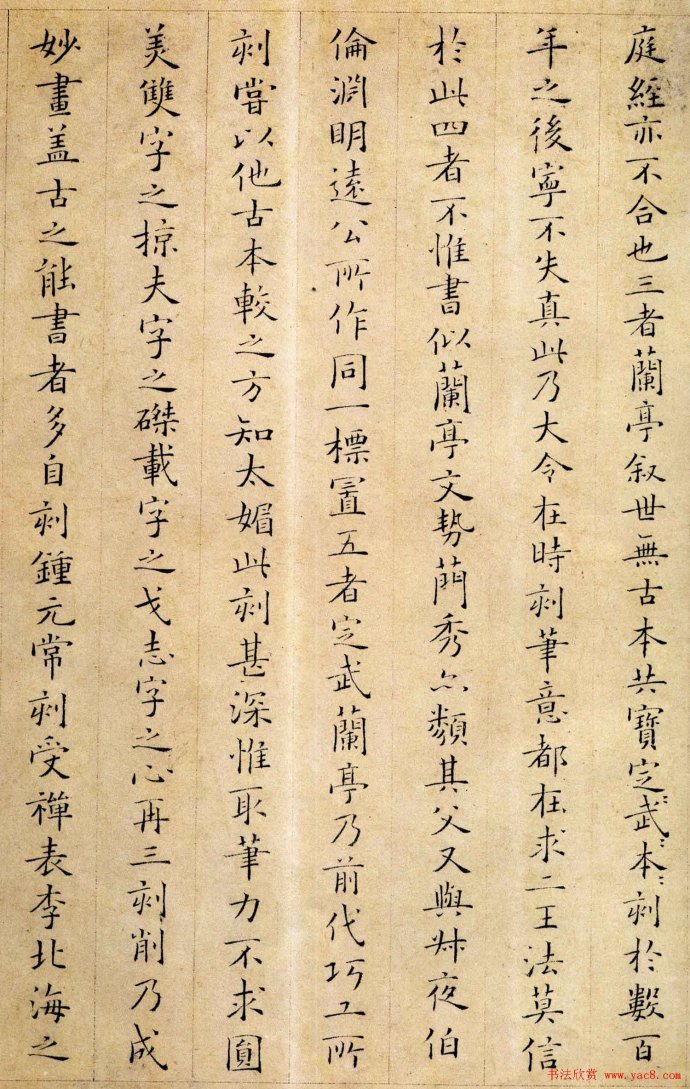 庭經亦不合也三者蘭亭叙世無古本共寶定〻武〻本〻刻於數百
年之後寧不失真此乃大令在時刻筆意都在求二王法莫信
於此四者不惟書似蘭亭文勢蕳秀亦類其父又與叔夜伯
倫淵明遠公所作同一標置五者定武蘭亭乃前代巧工所
刻嘗以他古本較之方知太媚此刻甚深惟取筆力不求圓
美雙字之掠夫字之磔載字之戈志字之心再三刻削乃成
妙畫盖古之能書者多自刻鍾元常刻受禪表李北海之
书法欣赏 www.yac8.com